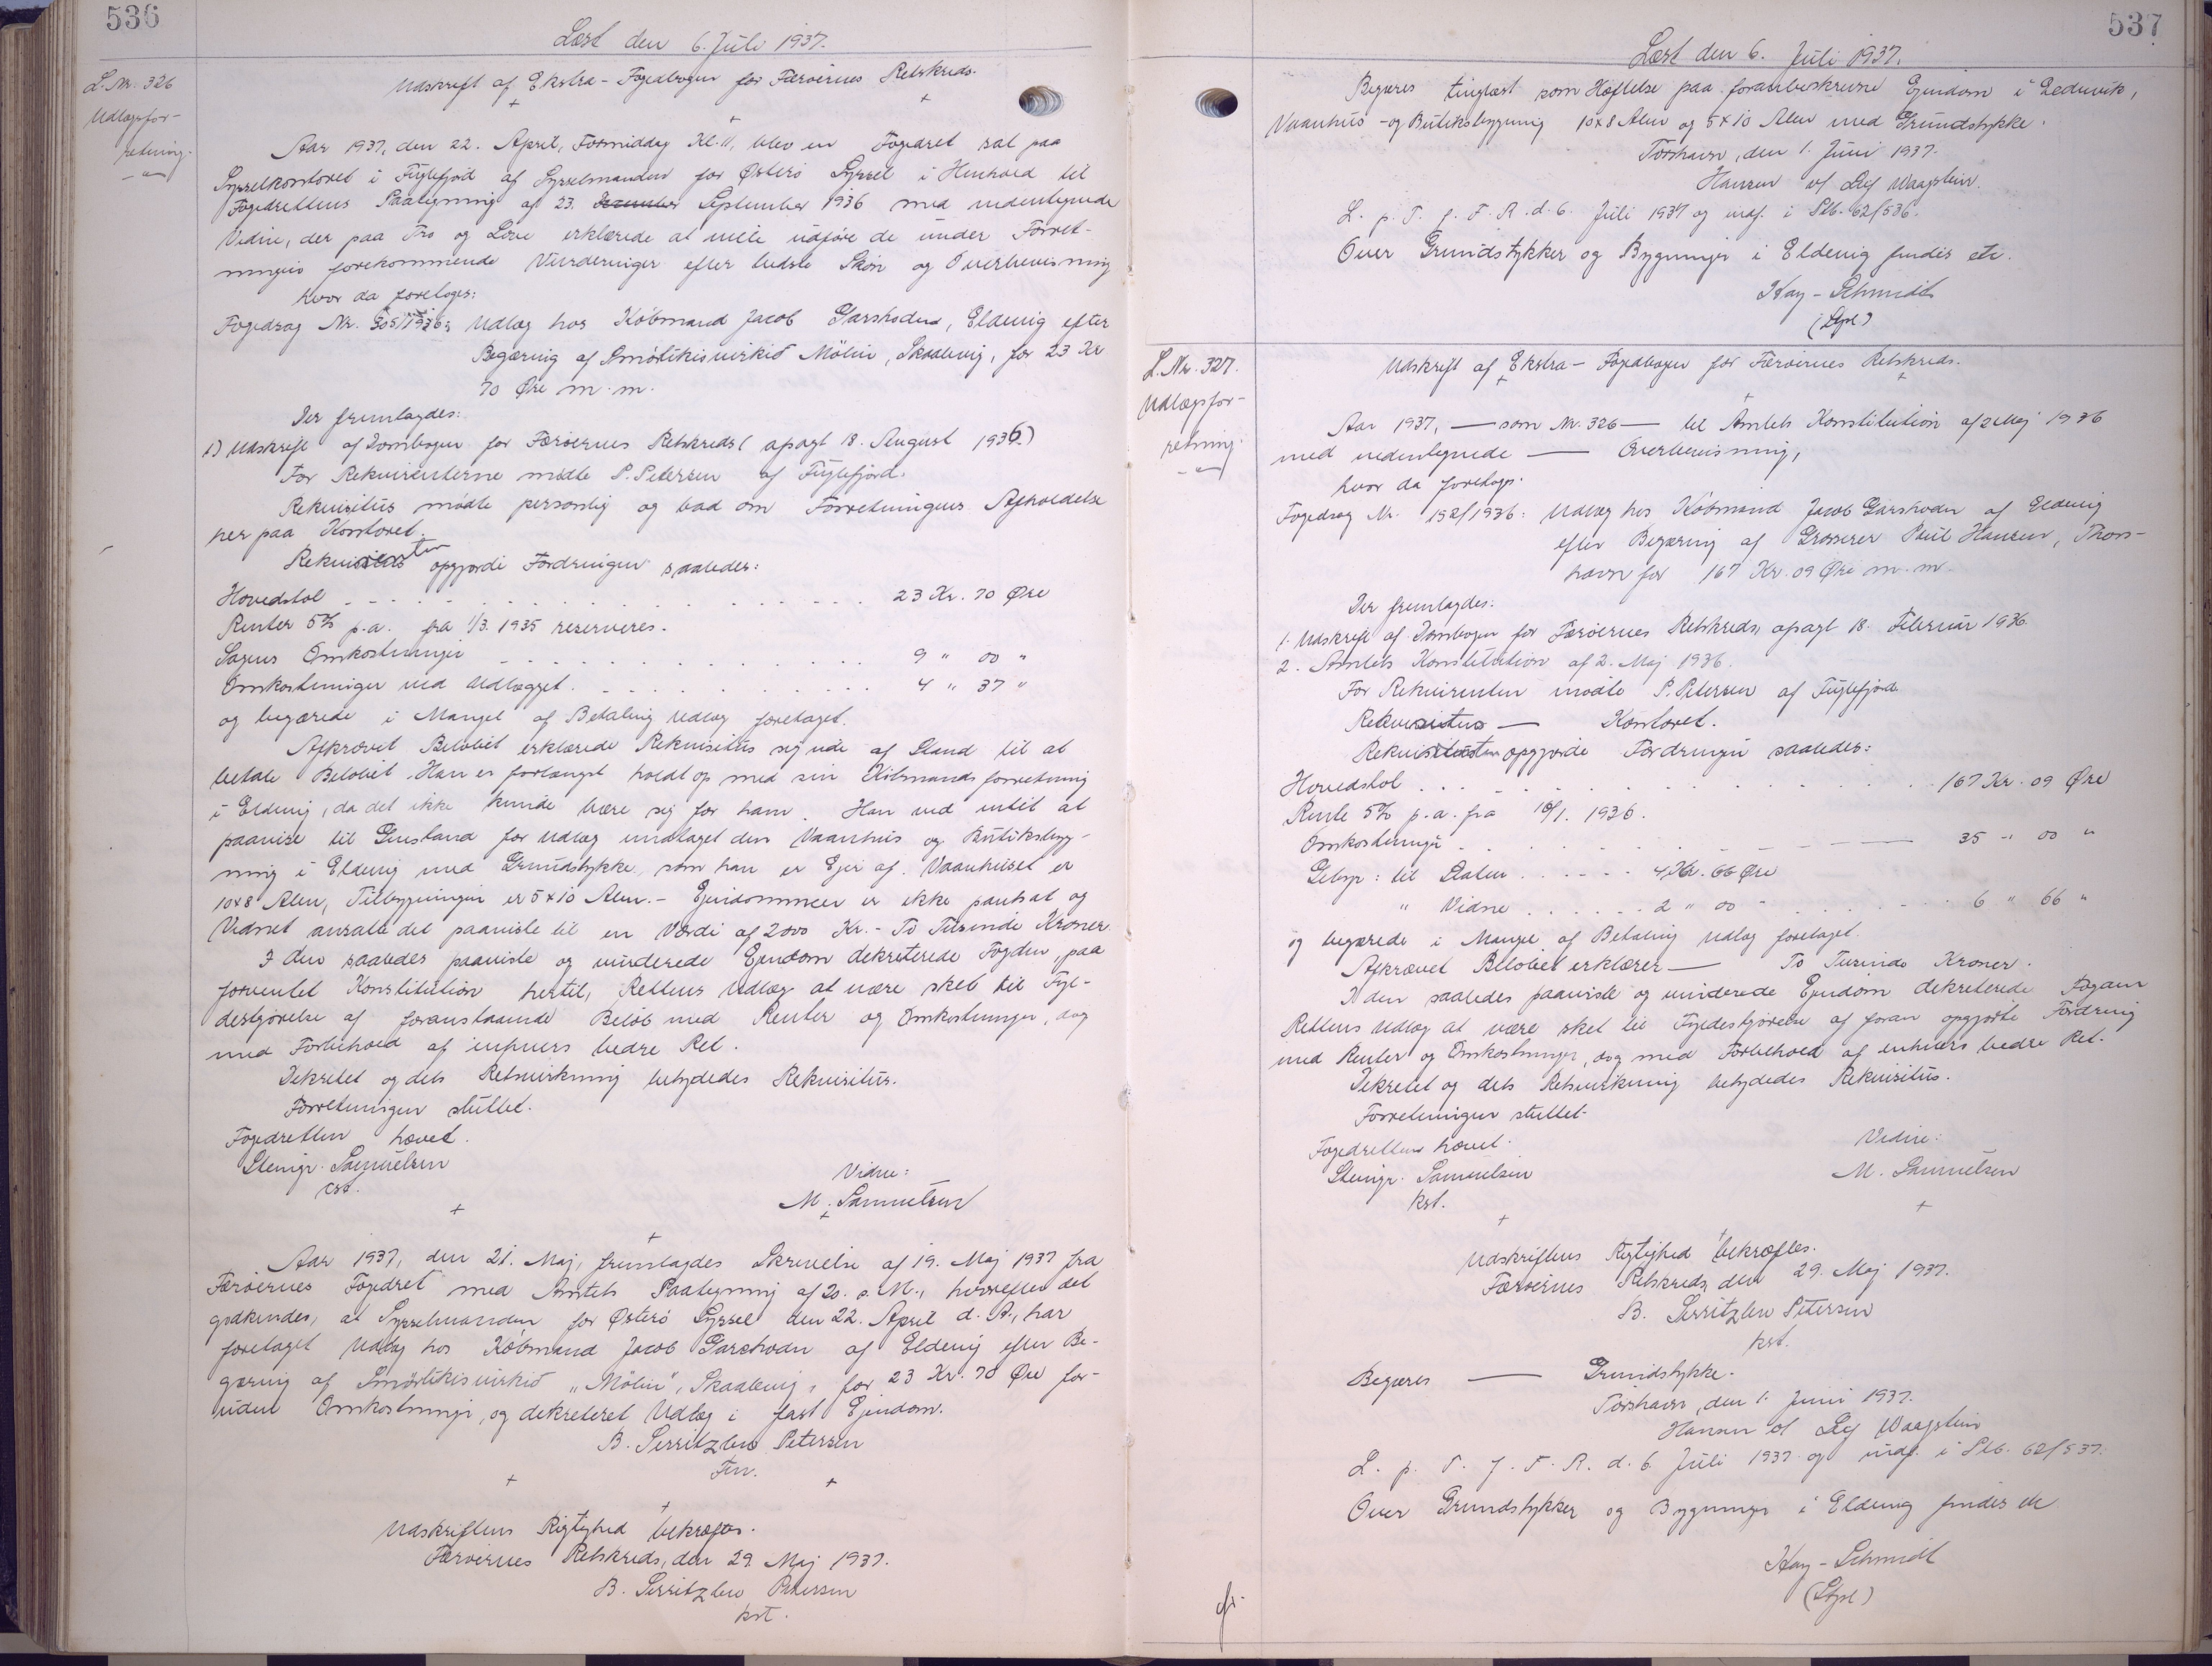 536
Læst den 6. Juli 1937.
L. Nr. 326
Udlægsfor-
retning.
Udskrift af Ekstra-Fogedbogen for Færøernes Retskreds.
Aar 1937, den 22. April, Formiddag Kl. 11, blev en Fogedret sat paa
Sysselkontoret i Fuglefjord af Sysselmanden for Østerø Syssel i Henhold til
Fogedrettens Paategning af 23. December September 1936 med undertegnede
Vidne, der paa Tro og Love erklærede at ville udføre de under Forret-
ningen forekommende Vurderinger efter bedste Skøn og Overbevisning
hvor da foretoges:
Fogedsag Nr. 305/1936: Udlæg hos Købmand Jacob Garshodn, Eldevig efter
Begæring af Smørlikisvirkið Mölin, Skaalevig, for 23 Kr
70 Øre m.m.
Der fremlagdes:
1) Udskrift af Dombogen for Færøernes Retskreds (afsagt 18. August 1936.)
For Rekvirenterne mødte P. Petersen af Fuglefjord.
Rekvisitus mødte personlig og bad om Forretningens Afholdelse
her paa Kontoret.
Rekvirenten opgjorde Fordringen saaledes:
Hovedstol 23 Kr. 70 Øre
Renter 5% p.a. fra 1/3. 1935 reserveres.
Sagens Omkostninger 9 " 00 "
Omkostninger ved Udlægget. 4 " 37 "
og begærede i Mangel af Betaling Udlæg foretaget.
Afkrævet Beløbet erklærede Rekvisitus sig ude af Stand til at
betale Beløbet. Han er forlængst holdt op med sin Købmandsforretning
i Eldevig, da det ikke kunde bære sig for ham. Han ved intet at
paavise til Genstand for Udlæg undtaget den Vaanhus og Butiksbyg-
ning i Eldevig med Grundstykke, som han er Ejer af. Vaanhuset er
10x8 Alen, Tilbygningen er 5x10 Alen.- Ejendommen er ikke pantsat og
Vidnet ansatte det paaviste til en Værdi af 2000 Kr.- To Tusinde Kroner.
I den saaledes paaviste og vurderede Ejendom dekreterede Fogden, paa
forventet Konstitution hertil, Rettens Udlæg at være sket til Fyl-
destgørelse af foranstaaende Beløb med Renter og Omkostninger, dog
med Forbehold af enhvers bedre Ret.
Dekretet og dets Retsvirkning betydedes Rekvisitus.
Forretningen sluttet.
Fogedretten hævet.
Steingr. Samuelsen
kst.
Vidne:
M. Samuelsen
Aar 1937, den 21. Maj, fremlagdes Skrivelse af 19. Maj 1937 fra
Færøernes Fogedret med Amtets Paategning af 20. s. M., hvorefter det
godkendes, at Sysselmanden for Østerø Syssel den 22. April d. A., har
foretaget Udlæg hos Købmand Jacob Garshodn af Eldevig efter Be-
gæring af Smørlikisvirkið "Mölin", Skaalevig, for 23 Kr. 70 Øre for-
uden Omkostninger, og dekreteret Udlæg i fast Ejendom.
B. Serritzlew Petersen
Fm.
Udskriftens Rigtighed bekræftes.
Færøernes Retskreds, den 29. Maj 1937.
B. Serritzlew Petersen
kst.
537
Læst den 6. Juli 1937.
Begæres tinglæst som Hæftelse paa foranbeskrevne Ejendom i
Vaanhus- og Butiksbygning 10x8 Alen og 5x10 Alen med Grundstykke.
Torshavn, den 1. Juni 1937.
Hansen
L. p. T. f. F. R. d. 6. Juli 1937 og indf. i Ptb. 62/536.
Over Grundstykker og Bygninger i Eldevig findes etc.
Kay-Schmidt
L. Nr. 327.
Udlægsfor-
retning.
Udskrift af Ekstra-Fogedbogen for Færøernes Retskreds.
Aar 1937, — som Nr. 326 — til Amtets Konstitution af 2 Maj 1936
med undertegnede — Overbevisning,
hvor da foretoges:
Fogedsag Nr. 152/1936: Udlæg hos Købmand Jacob Garshodn af Eldevig
efter Begæring af Grosserer Poul Hansen, Thors-
havn for 167 Kr. 09 Øre m.m.
Der fremlagdes:
1. Udskrift af Dombogen for Færøernes Retskreds, afsagt 18. Februar 1936
2. Amtets Konstitution af 2. Maj 1936.
For Rekvirenten mødte P. Petersen af Fuglefjord
Rekvisitus — Kontoret.
Rekvirenten opgjorde Fordringen saaledes:
Hovedstol 167 Kr. 09 Øre
Rente 5% p.a. fra 1936.
Omkostninger 35 " 00 "
Gebyr: til Staten 4 Kr. 66 Øre
" Vidne 2 " 00 " 6 " 66 "
og begærede i Mangel af Betaling Udlæg foretaget.
Afkrævet Beløbet erklærer — To Tusinde Kroner.
I den saaledes paaviste og vurderede Ejendom dekreterede Fogden
Rettens Udlæg at være sket til Fyldestgørelse af foran opgjorte Fordring
med Renter og Omkostninger, dog med Forbehold af enhvers bedre Ret.
Dekretet og dets Retsvirkning betydedes Rekvisitus.
Forretningen sluttet.
Fogedretten hævet.
Steingr. Samuelsen
kst.
Vidne:
M. Samuelsen
Udskriftens Rigtighed bekræftes.
Færøernes Retskreds, den 29. Maj 1937.
B. Serritzlew Petersen
kst.
Begæres — Grundstykke.
Torshavn, den 1. Juni 1937.
Hansen
L. p. T. f. F. R. d. 6. Juli 1937 og indf. i Ptb. 62/537.
Over Grundstykker og Bygninger i Eldevig findes etc
Kay-Schmidt